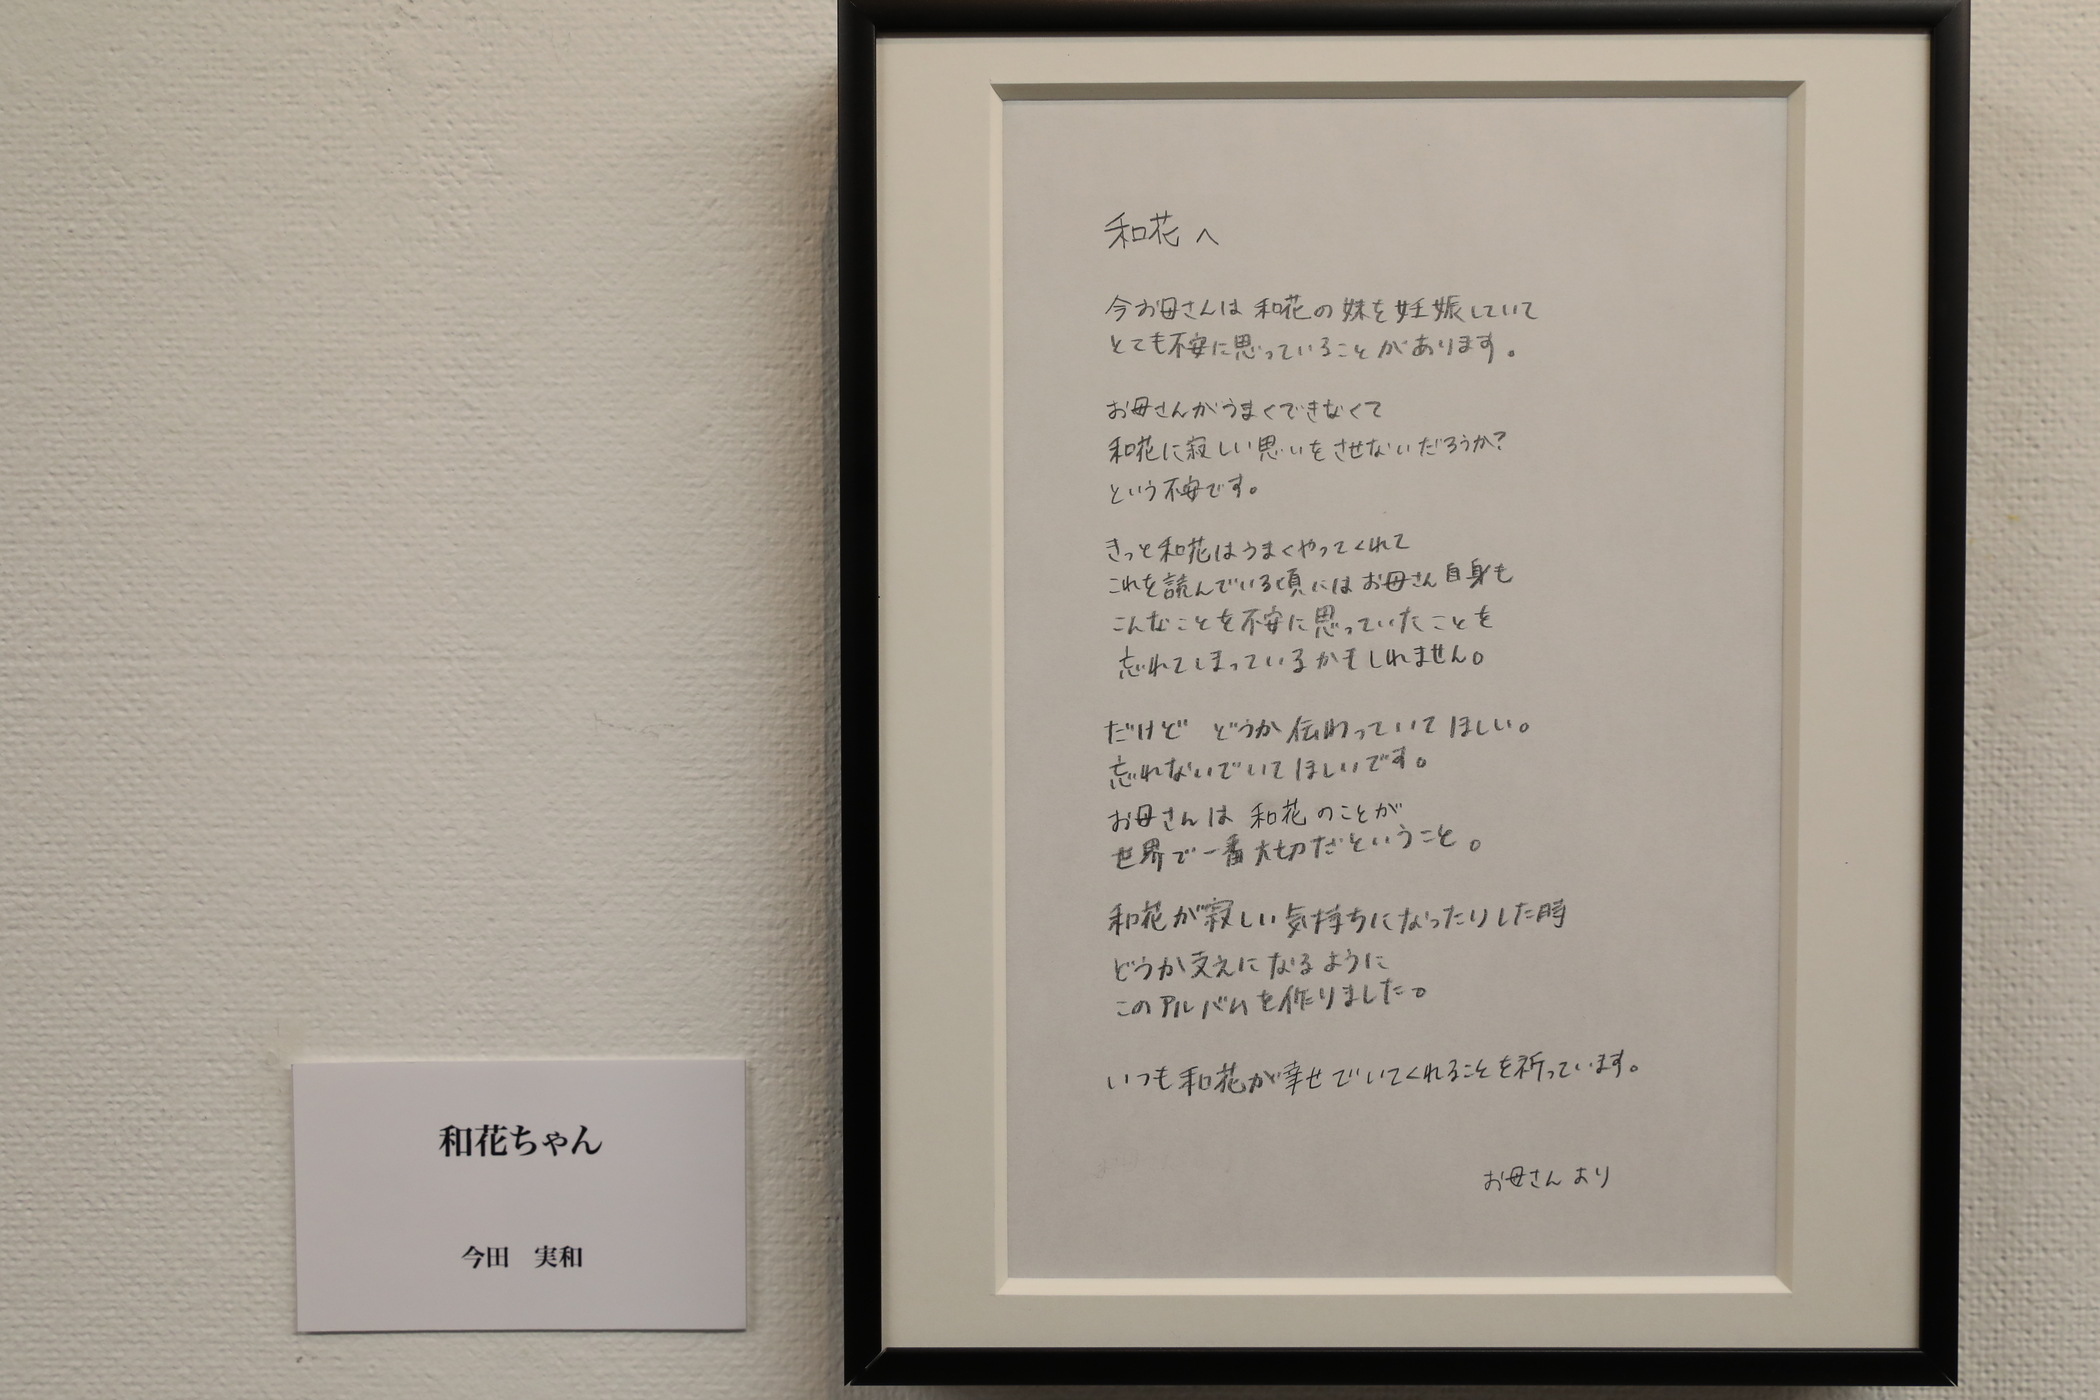 和花へ
今お母さんは 和花の妹を妊娠していて
とても不安に思っていることがあります。
お母さんがうまくできなくて
和花に寂しい思いをさせないだろうか?
という不安です。
きっと和花はうまくやってくれて
これを読んでいる頃にはお母さん自身も
こんなことを不安に思っていたことを
忘れてしまっているかもしれません。
だけど どうか伝わっていてほしい。
忘れないでいてほしいです。
お母さんは 和花のことが
世界で一番大切だということ。
和花が寂しい気持ちになったりした時
どうか支えになるように
このアルバムを作りました。
いつも和花が幸せでいてくれることを祈っています。
お母さんより
和花ちゃん
今田 実和